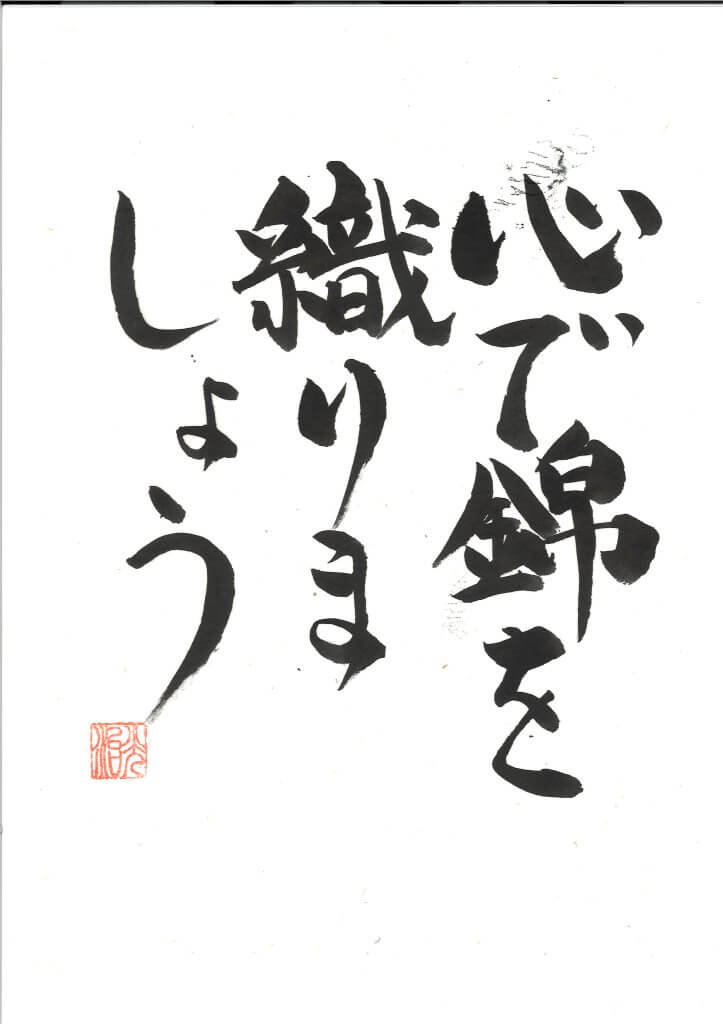 心で錦を
織りま
しょう